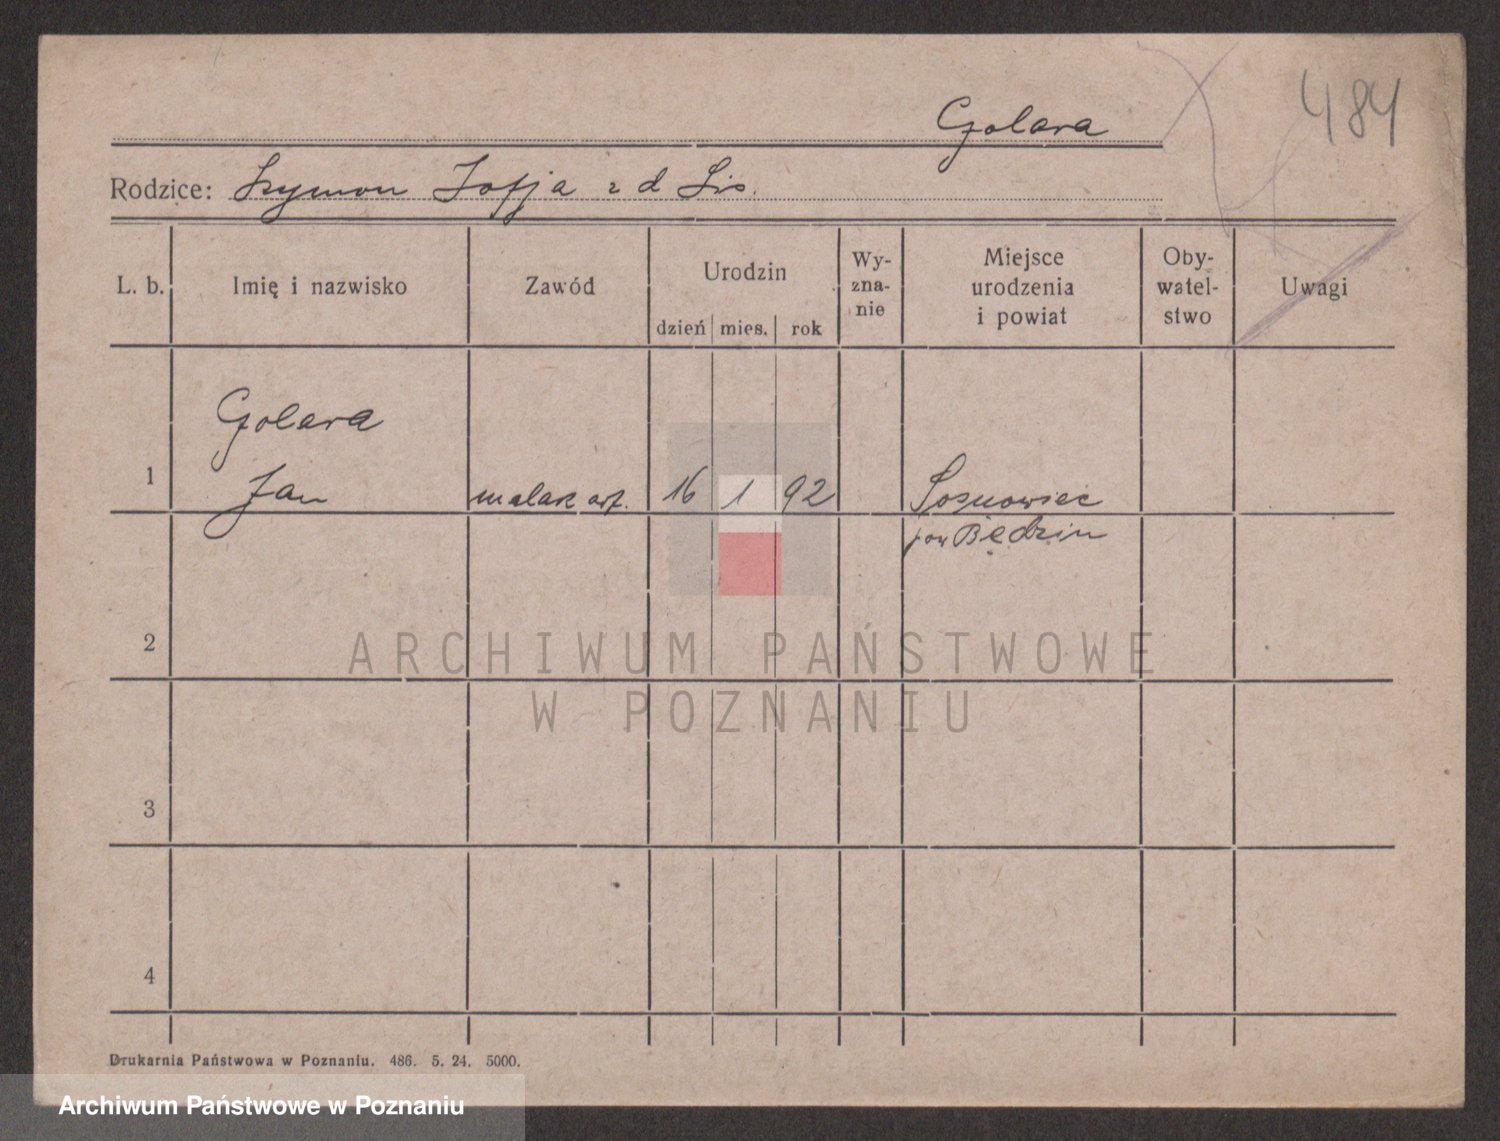 484
Golara
Rodzice: Szymon Zofja z d Lis.
L. b. Imię i nazwisko Zawód Urodzin dzień mies. rok Wy-zna-nie Miejsce urodzenia i powiat Oby-watel-stwo Uwagi
Golara
1 Jan malarz art. 16 1 92 Sosnowiec
pow Będzin
2
ARCHIWUM PAŃSTWOWE
W POZNANIU
3
4
Drukarnia Państwowa w Poznaniu. 486. 5. 24. 5000.
Archiwum Państwowe w Poznaniu